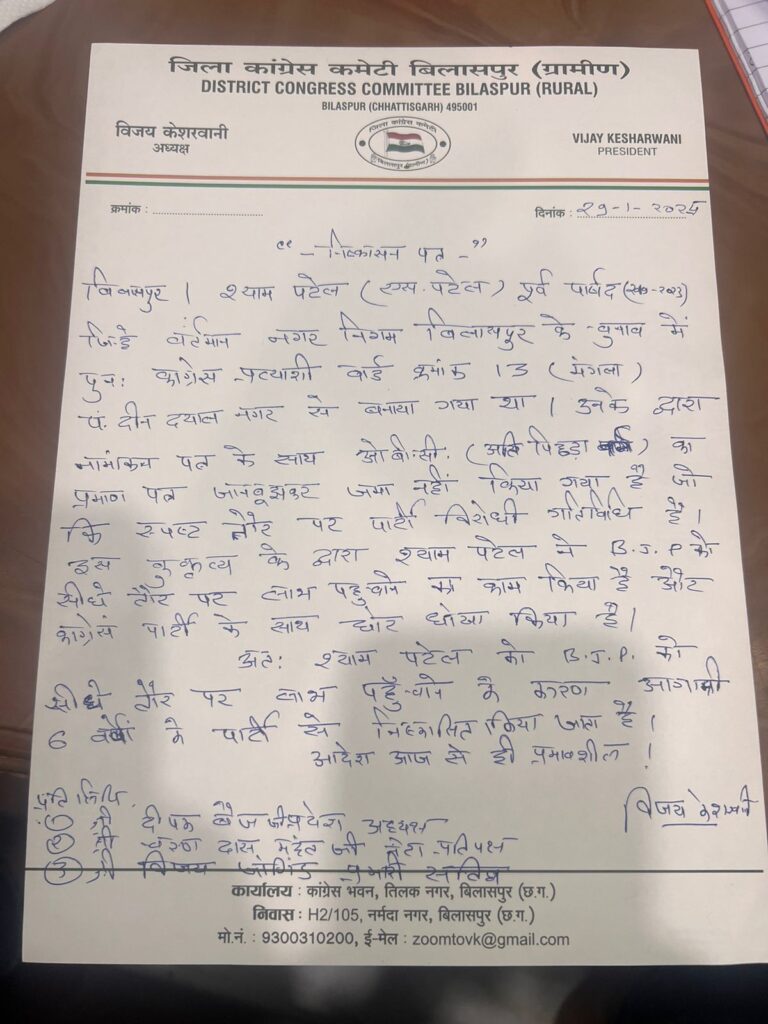 जिला कांग्रेस कमेटी बिलासपुर (ग्रामीण)
DISTRICT CONGRESS COMMITTEE BILASPUR (RURAL)
BILASPUR (CHHATTISGARH) 495001
विजय केशरवानी
अध्यक्ष
जिला कांग्रेस कमेटी
बिलासपुर (ग्रामीण)
VIJAY KESHARWANI
PRESIDENT
क्रमांक :
दिनांक : 29-1-2025
"- निष्कासन पत्र -"
बिलासपुर । श्याम पटेल (एस. पटेल) पूर्व पार्षद
जिन्हे वर्तमान नगर निगम बिलासपुर के चुनाव में
पुनः कांग्रेस प्रत्याशी वार्ड क्रमांक 13 (मंगला)
पं. दीनदयाल नगर से बनाया गया था । उनके द्वारा
नामांकन पत्र के साथ ओ.बी.सी. (अति पिछड़ा वर्ग) का
प्रमाण पत्र जानबूझकर जमा नहीं किया गया है जो
कि स्पष्ट तौर पर पार्टी विरोधी गतिविधि है ।
इस कुकृत्य के द्वारा श्याम पटेल ने B.J.P को
सीधे तौर पर लाभ पहुचाने का काम किया है और
कांग्रेस पार्टी के साथ घोर धोखा किया है ।
अतः श्याम पटेल को B.J.P. को
सीधे तौर पर लाभ पहुँचाने के कारण आगामी
6 वर्षो के पार्टी से निष्कासित किया जाता है ।
आदेश आज से ही प्रभावशील !
प्रतिलिपि
विजय केशरवानी
① श्री दीपक बैज जी प्रदेश अध्यक्ष
② श्री चरण दास महंत जी नेता प्रतिपक्ष
③ श्री विजय जांगिड़ प्रभारी सचिव
कार्यालय : कांग्रेस भवन, तिलक नगर, बिलासपुर (छ.ग.)
निवास : H2/105, नर्मदा नगर, बिलासपुर (छ.ग.)
मो.नं. : 9300310200, ई-मेल : zoomtovk@gmail.com